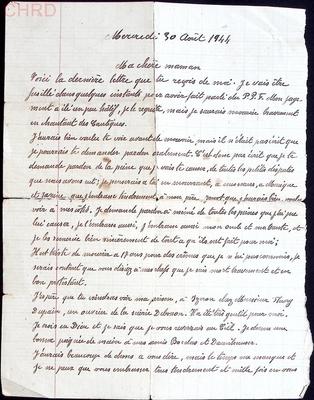 CHRD
Mercredi 30 Août 1944
Ma Chère maman
Voici la dernière lettre que tu reçois de moi. Je vais être
fusillé dans quelques instants pour avoir fait parti du P.P.F. Mon juge-
ment a été un peu hâtif, je le regrette, mais je saurais mourir bravement
en chantant des Cantiques.
J'aurais bien voulu te voir avant de mourir, mais il n'était pas écrit que
je pourrais te demander pardon oralement. C'est donc par écrit que je te
demande pardon de la peine que j'ai pu te causer, de toutes les petites disputes
que nous avons eu; je penserais à toi en mourant, à
et que j'embrasse tendrement, à mon père, que j'aurais bien voulu
voir à mes côtés. Je demande pardon à mémé de toutes les peines que j'ai pu
lui causer, je l'embrasse aussi, j'embrasse aussi mon oncle et ma tante, et
je les remercie bien sincèrement de tout ce qu'ils ont fait pour moi;
Il est triste de mourir à 17 ans pour des crimes que je n'ai pas commis, je
serais content que vous disiez à mes chefs que je suis mort bravement et en
bon protestant.
J'espère que tu viendras voir ma prison, à chez Monsieur
un ouvrier de la Il a été gentil pour moi.
Je crois en Dieu et je sais que je vous reverrais au Ciel. Je donne une
bonne poignée de main à mes amis Bordas et
J'aurais beaucoup de choses à vous dire, mais le temps me manque et
je ne peux que vous embrasser tous tendrement et mille fois en vous